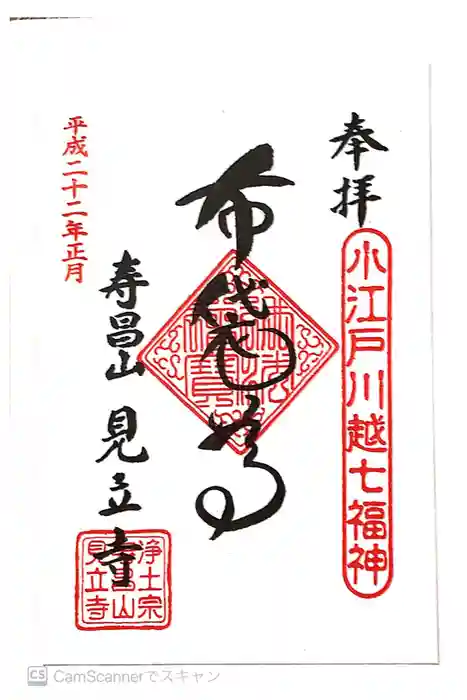 奉拝
小江戸川越七福神
布袋尊
平成二十二年正月
寿昌山 見立寺
浄土宗
寿昌山
見立寺
CS CamScannerでスキャン